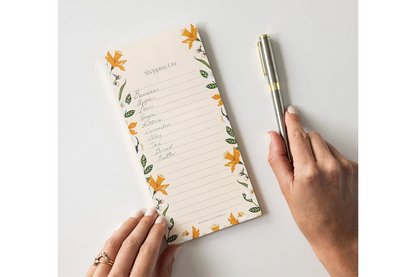 Shopping List
Bananas
Apples
Pears
Grapes
Lettuce
Cucumber
Tea
Bread
Butter